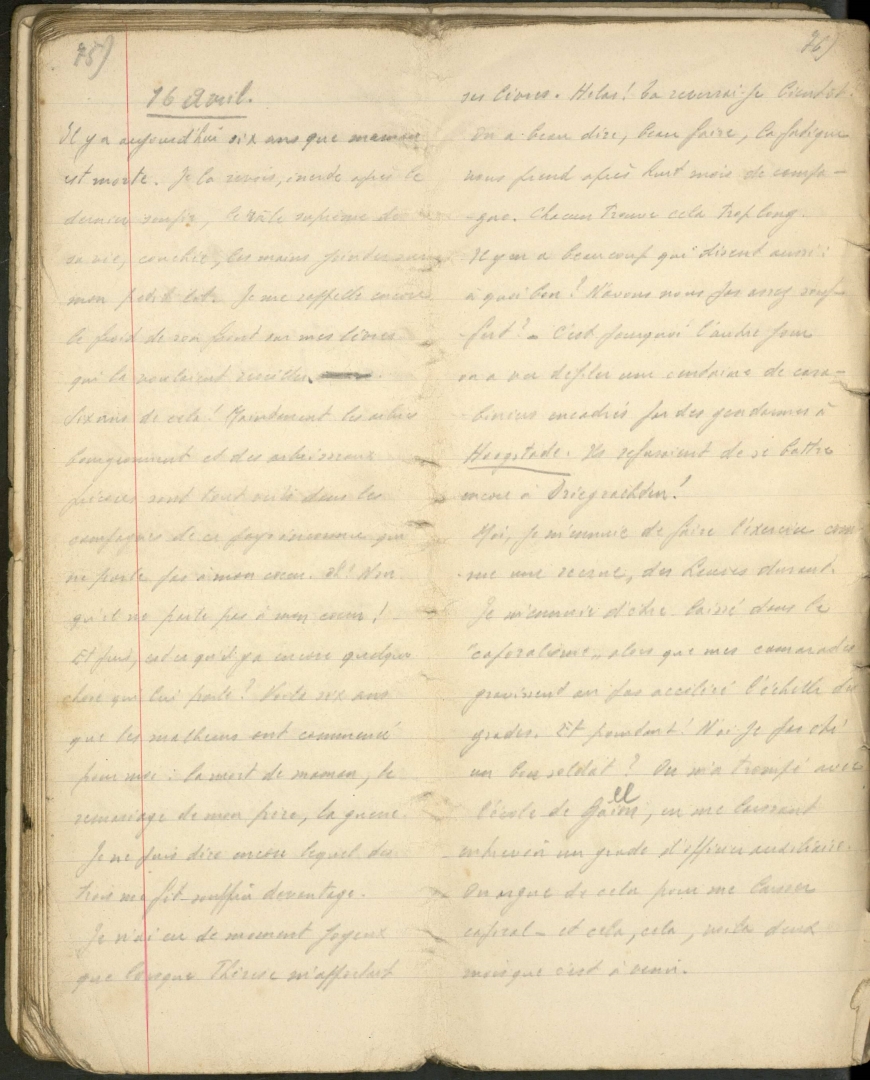 75)
16 Avril.
Il y a aujourd'hui six ans que maman
est morte. Je la revois, inerte après le
dernier soupir, le râle suprême de
sa vie, couchée, les mains jointes sur
mon petit lit. Je me rappelle encore
le froid de son front sur mes lèvres
qui la voulaient réveiller.
Six ans de cela! Maintenant les arbres
bourgeonnent et des arbrisseaux
précoces sont tout verts dans les
campagnes de ce pays inconnu qui
ne parle pas à mon coeur. Oh! Non
qu'il ne parle pas à mon coeur!
Et puis, est-ce qu'il y a encore quelque
chose qui lui parle? Voilà six ans
que les malheurs ont commencé
pour moi: la mort de maman, le
remariage de mon père, la guerre.
Je ne puis dire encore lequel des
trois me fit souffrir davantage.
Je n'ai eu de moment joyeux
que lorsque Thérèse m'apportait
76)
ses lèvres. Hélas! La reverrai-je bientôt.
On a beau dire, beau faire, la fatigue
nous prend après huit mois de campa-
-gne. Chacun trouve cela trop long.
Il y en a beaucoup qui disent aussi:
à quoi bon! N'avons nous pas assez souf-
-fert? - C'est pourquoi l'autre jour
on a vu défiler une centaine de cara-
-biniers encadrés par des gendarmes à
Hoogstade. Ils refusaient de se battre
encore à Driegrachten!
Moi, je m'ennuie de faire l'exercice com-
-me une recrue, des heures durant.
Je m'ennuie d'être laissé dans le
"caporalisme" alors que mes camarades
gravissent au pas accéléré l'échelle des
grades. Et pourtant! N'ai-je pas été
un bon soldat? On m'a trompé avec
l'école de , en me laissant
entrevoir un grade d'officier auxiliaire.
On argue de cela pour me laisser
caporal - et cela, cela, voilà deux
mois que c'est à venir.